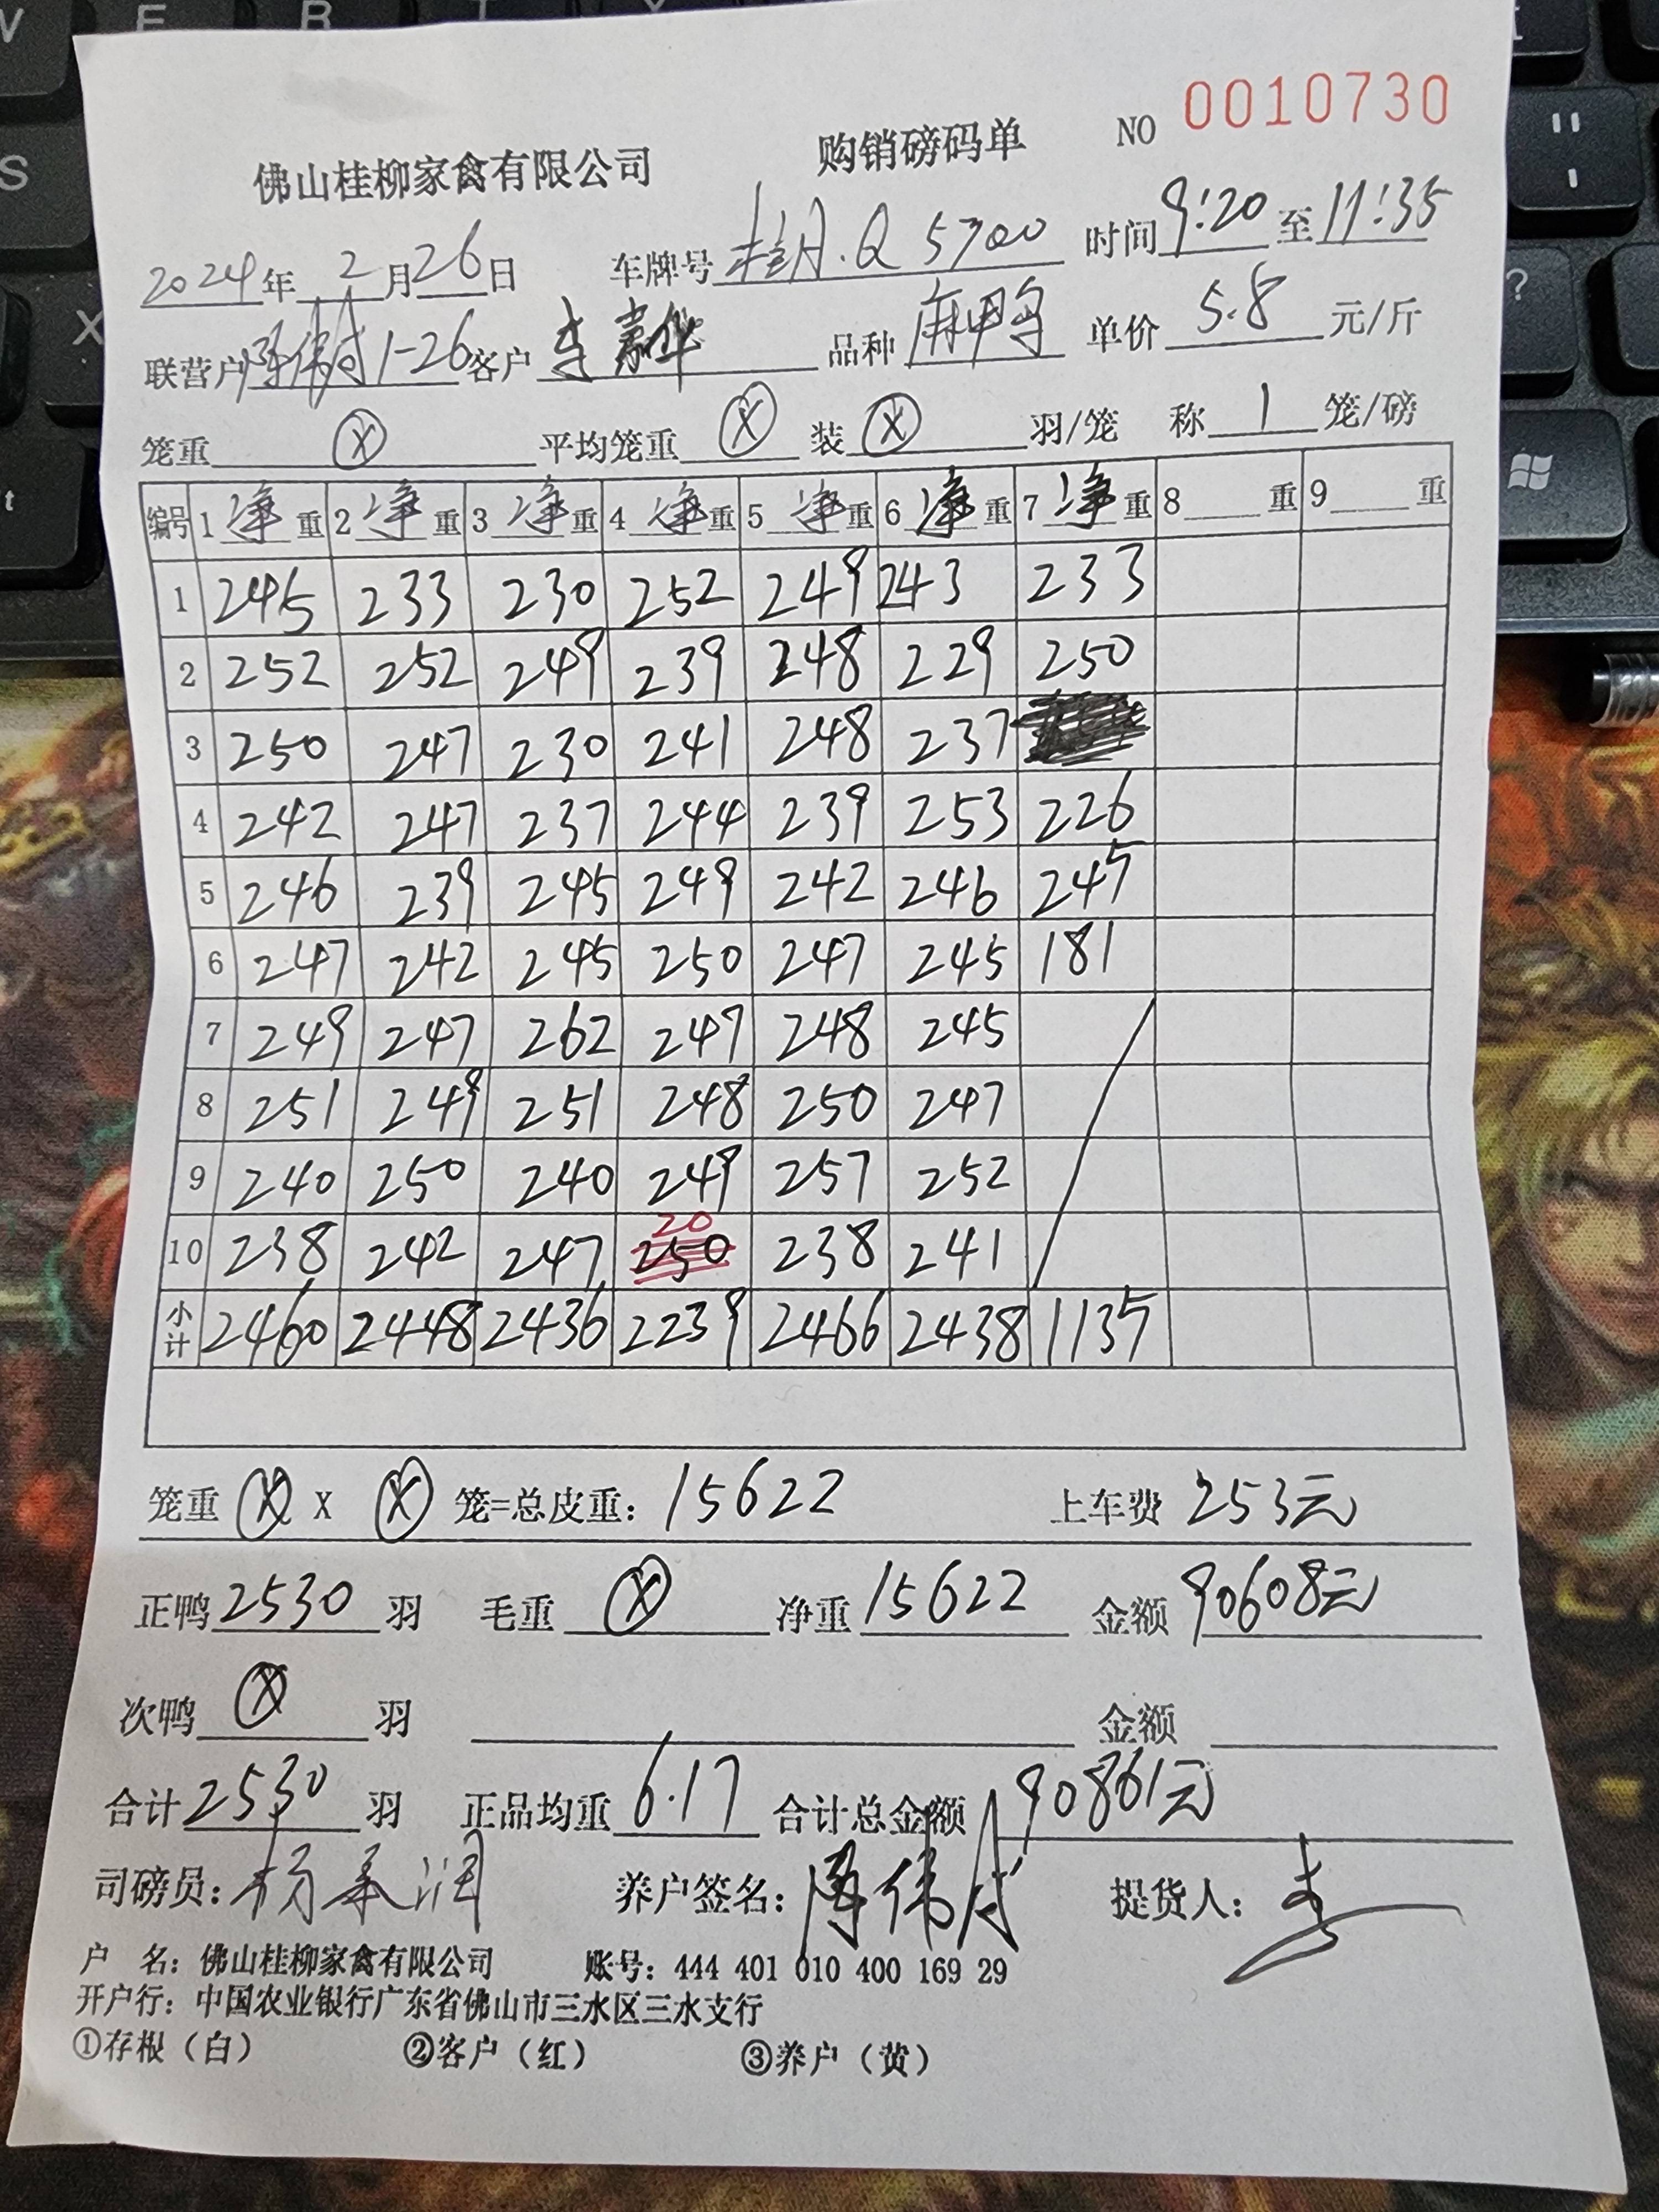 佛山桂柳家禽有限公司 购销磅码单 NO 0010730
2024年 2月26日 车牌号 桂A.Q5700 时间 9:20 至 11:35
联营户 1-26 客户 李嘉华 品种 麻鸭 单价 5.8 元/斤
笼重 ⓧ 平均笼重 ⓧ 装 ⓧ 羽/笼 称 1 笼/磅
编号 1净重 2净重 3净重 4净重 5净重 6净重 7净重 8 重 9 重
1 245 233 230 252 249 243 233
2 252 252 249 239 248 229 250
3 250 247 230 241 248 237
4 242 247 237 244 239 253 226
5 246 239 245 249 242 246 245
6 247 242 245 250 247 245 181
7 249 247 262 247 248 245
8 251 249 251 248 250 247
9 240 250 240 249 257 252
10 238 242 247 20 250 238 241
小计 2460 2448 2436 2239 2466 2438 1135
笼重 ⓧ X ⓧ 笼=总皮重: 15622 上车费 253元
正鸭 2530 羽 毛重 ⓧ 净重 15622 金额 90608元
次鸭 ⓧ 羽 金额
合计 2530 羽 正品均重 6.17 合计总金额 90861元
司磅员: 杨 养户签名: 提货人: 李
户 名: 佛山桂柳家禽有限公司 账号: 444 401 010 400 169 29
开户行: 中国农业银行广东省佛山市三水区三水支行
①存根（白） ②客户（红） ③养户（黄）